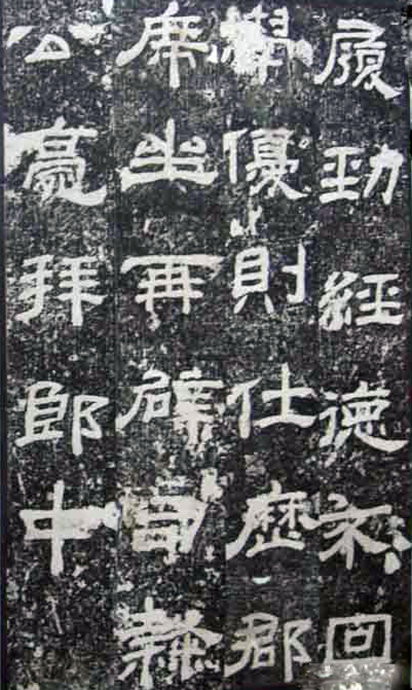 履勁經德不回
學優則仕歷郡
席坐再辟司隸
公臺拜郎中